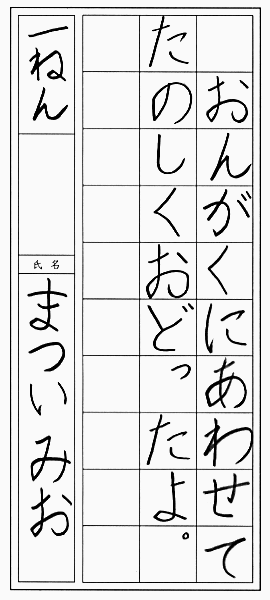 おんがくにあわせて
たのしくおどったよ。
一ねん
氏名
まついみお